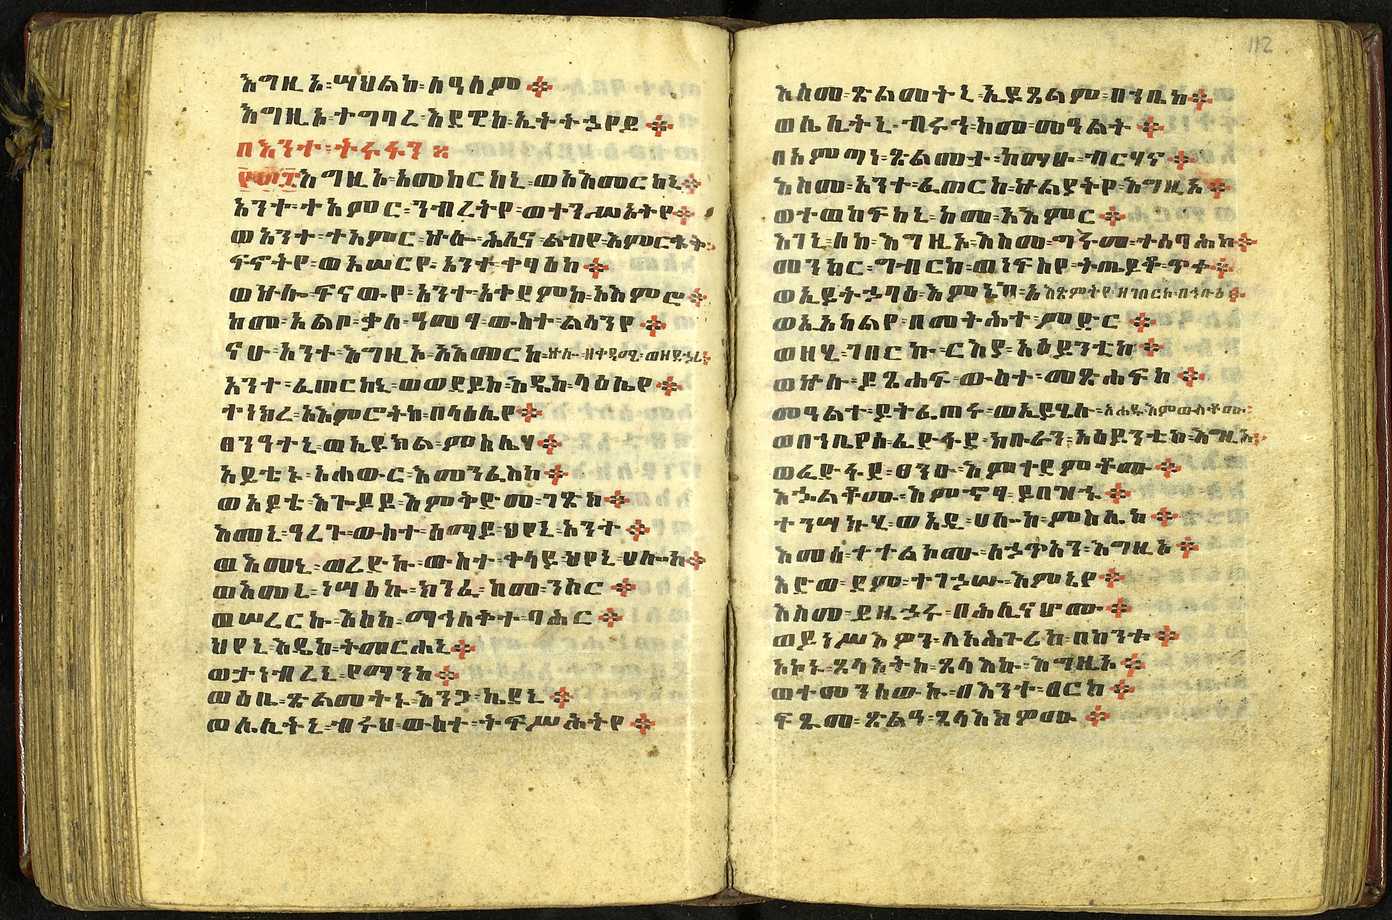 እግዚኦ፡ሣህልከ፡ለዓለም፨
እግዚኦ፡ተግባረ፡እደዊከ፡ኢትትኃየይ፨
በእንተ፡ትሩፋን፨
፻፴፰እግዚኦ፡አመከርከኒ፡ወአእመርከኒ፨
አንተ፡ተአምር፡ንብረትየ፡ወተንሥኦትየ፨
ወአንተ፡ተአምር፡ኵሎ፡ሕሊና፡ልብየ፡እምርኁቅ፨
ፍኖትየ፡ወአሠርየ፡አንተ፡ቀፃዕከ፨
ወኵሎ፡ፍናውየ፡አንተ፡አቅደምከ፡አእምሮ፨
ከመ፡አልቦ፡ቃለ፡ዓመፃ፡ውስተ፡ልሳንየ፨
ናሁ፡አንተ፡እግዚኦ፡አእመርከ፡ኵሎ፡ዘቀዳሚ፡ወዘደኃሪ፨
አንተ፡ፈጠርከኒ፡ወወደይከ፡እዴከ፡ላዕሌየ፨
ተነክረ፡አእምሮትከ፡በላዕሌየ፨
ፀንዓተኒ፡ወኢይክል፡ምስሌሃ፨
አይቴኑ፡አሐውር፡እመንፈስከ፨
ወአይቴ፡እጐይይ፡እምቅድመ፡ገጽከ፨
እመኒ፡ዓረጉ፡ውስተ፡ሰማይ፡ህየኒ፡አንተ፨
ወእመኒ፡ወረድኩ፡ውስተ፡ቀላይ፡ህየኒ፡ሀሎከ፨
ወእመኒ፡ነሣዕኩ፡ክንፈ፡ከመ፡ንስር፨
ወሠረርኩ፡እስከ፡ማኅለቅተ፡ባሕር፨
ህየኒ፡እዴከ፡ትመርሐኒ፨
ወታነብረኒ፡የማንከ፨
ወዕቤ፡ጽልመትኑ፡እንጋ፡ኬደኒ፨
ወሌሊትኒ፡ብሩህ፡ውስተ፡ትፍሥሕትየ፨
112
እስመ፡ጽልመትኒ፡ኢይጼልም፡በኀቤከ፨
ወሌሊትኒ፡ብሩህ፡ከመ፡መዓልት፨
በአምጣነ፡ጽልመታ፡ከማሁ፡ብርሃና፨
እስመ፡አንተ፡ፈጠርከ፡ኵልያትየ፡እግዚኦ፨
ወተወከፍከኒ፡ከመ፡እእምር፨
እገኒ፡ለከ፡እግዚኦ፡እስመ፡ግሩመ፡ተሰባሕከ፨
መንክር፡ግብርከ፡ወነፍስየ፡ትጤይቆ፡ጥቀ፨
ወኢይትኃባዕ፡እምኔከ፡አዕጽምትየ፡ዘገበርከ፡በኅቡዕ፨
ወኢአካልየ፡በመትሕተ፡ምድር፨
ወዘሂ፡ገበርኩ፡ርእያ፡አዕይንቲከ፨
ወኵሉ፡ይጼሐፍ፡ውስተ፡መጽሐፍከ፨
መዓልተ፡ይትፈጠሩ፡ወኢይሄሉ፡አሐዱ፡እምውስቶሙ፨
ወበኀቤየሰ፡ፈድፋደ፡ክቡራን፡አዕይንቲከ፡እግዚኦ፨
ወፈድፋደ፡ፀንዑ፡እምቀደምቶሙ፨
እኋልቆሙ፡እምኆፃ፡ይበዝኁ፨
ተንሣኩሂ፡ወአዲ፡ሀሎኩ፡ምስሌከ፨
እመሰ፡ቀተልኮሙ፡ለኃጥአን፡እግዚኦ፨
እድወ፡ደም፡ተገኃሡ፡እምኔየ፨
እስመ፡ይዜኃሩ፡በሕሊናሆሙ፨
ወይነሥእዎን፡ለአሕጉሪከ፡በከንቱ፨
አኮኑ፡ጸላእትከ፡ጸላእኩ፡እግዚኦ፨
ወተመንሰውኩ፡በእንተ፡ፀርከ፨
ፍጹመ፡ጽልዓ፡ጸላእክዎሙ፨